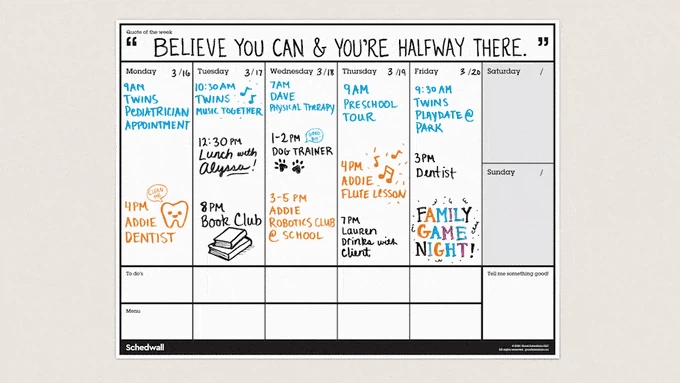 Quote of the week
“ BELIEVE YOU CAN & YOU'RE HALFWAY THERE. ”
Monday 3/16
9AM
TWINS
PEDIATRICIAN
APPOINTMENT
CLEAN ME
4PM
ADDIE
DENTIST
Tuesday 3/17
10:30AM
TWINS
MUSIC TOGETHER
12:30PM
Lunch with
Alyssa!
8PM
Book Club
Wednesday 3/18
7AM
DAVE
PHYSICAL THERAPY
1-2PM
GOOD BOY
DOG TRAINER
3-5 PM
ADDIE
ROBOTICS CLUB
@ SCHOOL
Thursday 3/19
9AM
PRESCHOOL
TOUR
4PM
ADDIE
FLUTE LESSON
7PM
Lauren
Drinks with
Client
Friday 3/20
9:30AM
TWINS
PLAYDATE @
PARK
3PM
Dentist
FAMILY
GAME
NIGHT!
Saturday /
Sunday /
To do's
Tell me something good!
Menu
Schedwall